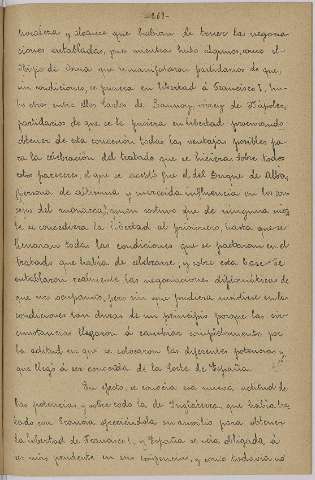 -161-
hiciera y alcance que habian de tener la negocia-
ciones entabladas, pues mientras hubo algunos, como el
Obispo de Osma que se manifestaron partidarios de que,
sin condiciones, se pusiera en libertad á Francisco I, hu-
bo otros entre ellos Carlos de Lannoy, virey de Nápoles,
partidarios de que se le pusiera en libertad procurando
obtener de esta concesion todas las ventajas posibles pa-
ra la celebracion del tratado que se hiciera. Sobre todos
estos pareceres, el que se aceptó fué el del Duque de Alba,
(persona de altisima y merecida influencia en los con-
sejos del monarca), quien sostuvo que de ninguna mo-
do se concediera la libertad al prisionero, hasta que se
llenaran todas las condiciones que se pactaran en el
tratado que habia de celebrarse, y sobre esta base se
entablaron realmente las negociaciones diplomáticas de
que nos ocupamos, pero sin que pudiera insistirse en las
condiciones tan duras de un principio porque las cir-
cunstancias llegaron á cambiar completamente por
la actitud en que se colocaron las diferentes potencias y
que llegó á ser conocida de la Corte de España.
En efecto, se conocia esa nueva actitud de
las potencias, y sobre todo la de Inglaterra, que habia tra-
tado con Francia ofreciéndole su auxilio para obtener
la libertad de Francisco I, y España se veia obligada á
ser mas prudente en sus exigencias, y como todavia no